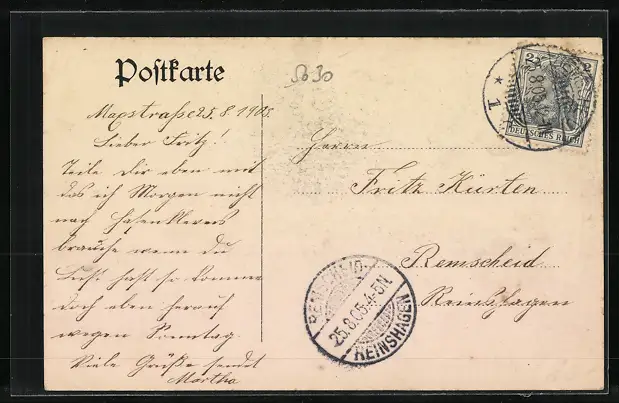 Postkarte
5030
Mapstraße 25.8.1905.
Lieber Fritz!
Teile dir eben mit
das ich Morgen nicht
nach Hasenclevers
brauche wenn du
Lust hast so komme
doch eben herauf
wegen Sonntag.
Viele Grüße sendet
Martha
Herrn
Fritz Kürten
Remscheid
Reinshagen
REMSCHEID-
25.8.05.4-5N
REINSHAGEN
DEUTSCHES REICH
* 1